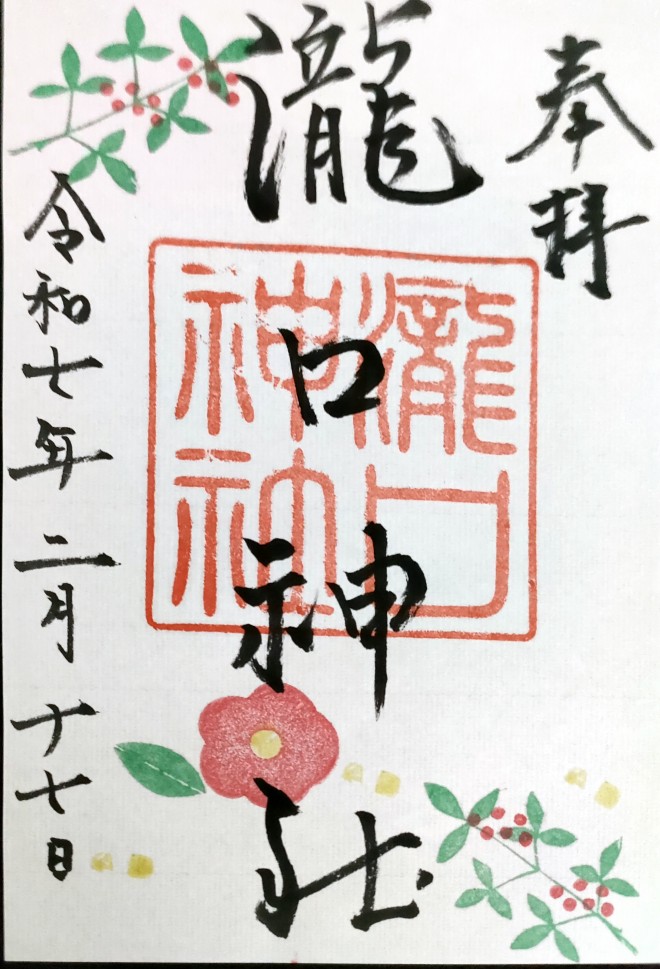 奉拝
瀧口神社
瀧口
神社
令和七年二月十七日